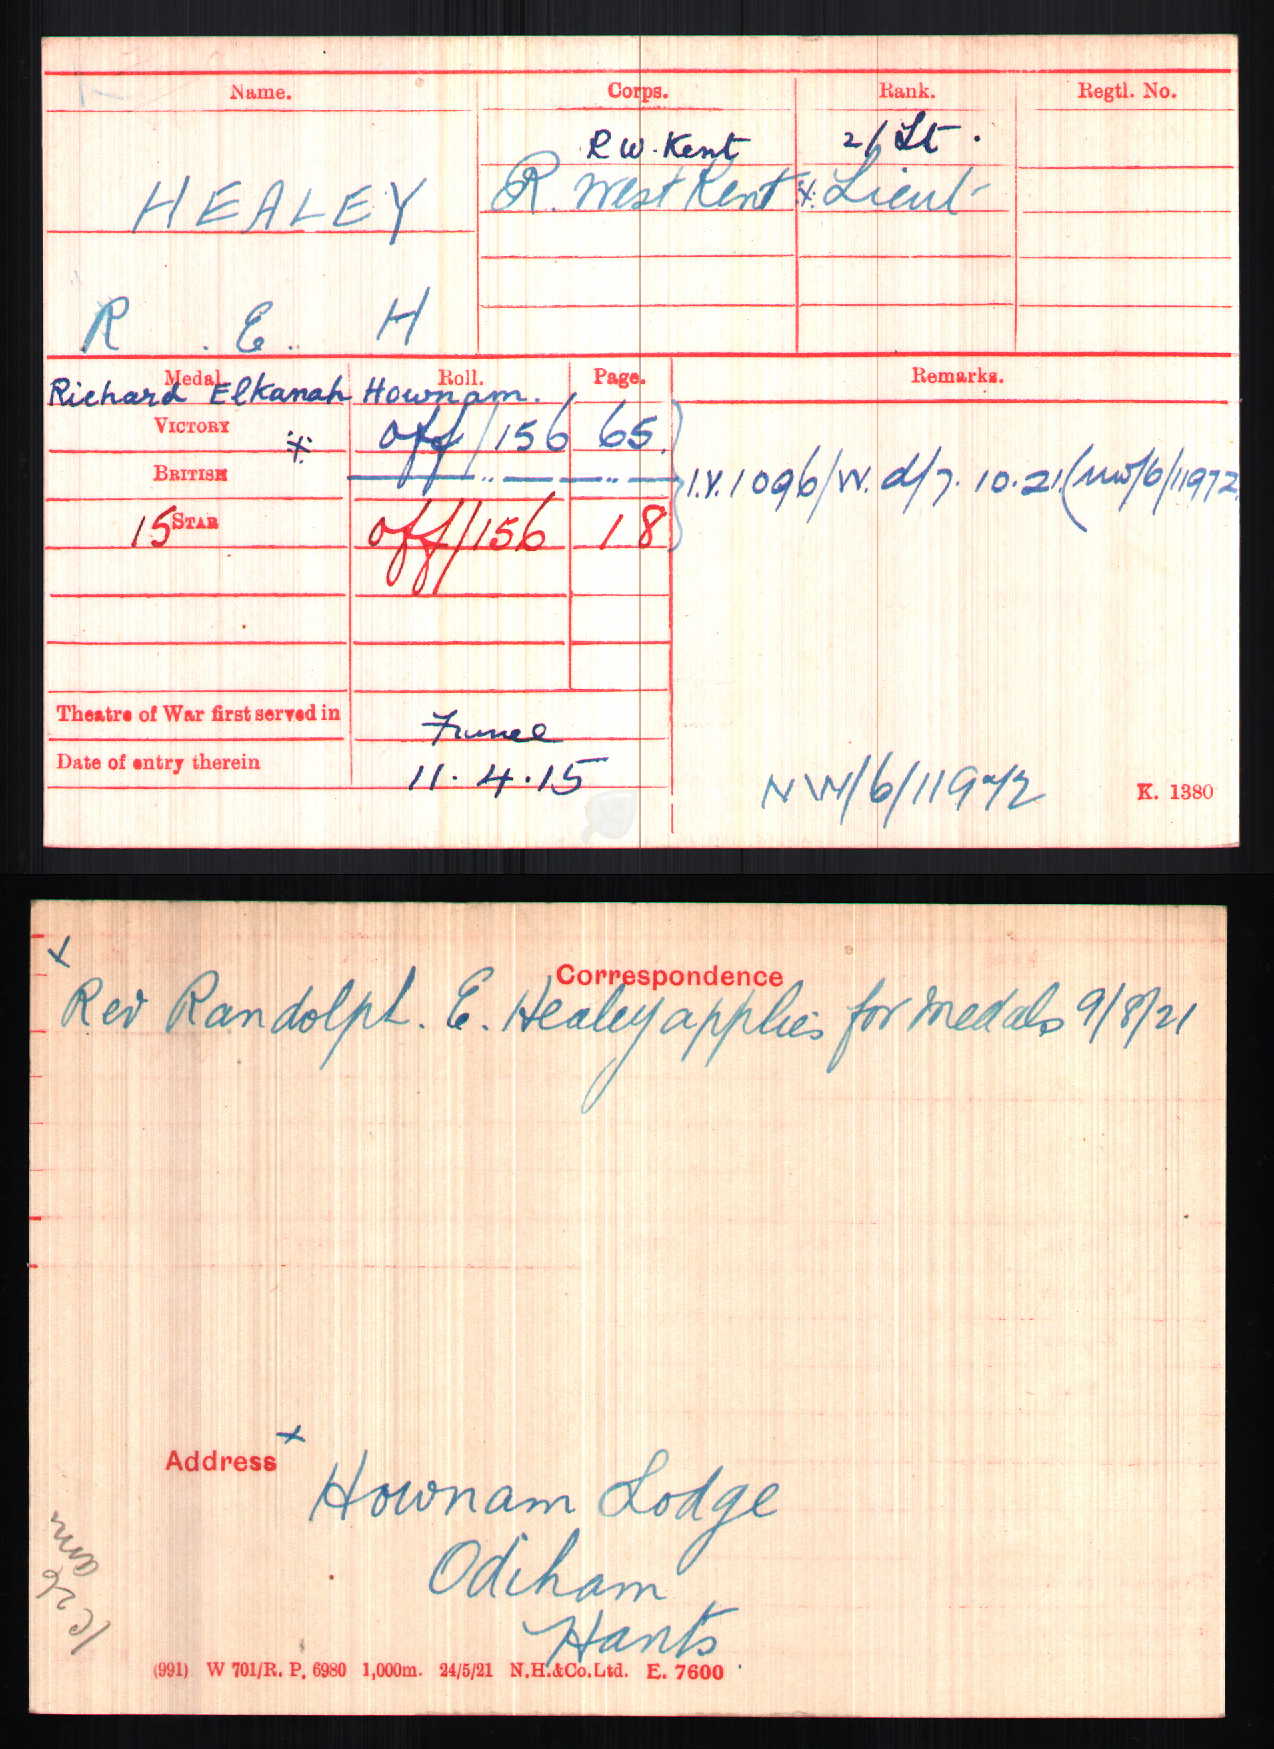 Name. Corps. Rank. Regtl. No.
R W. Kent 2/Lt.
HEALEY R. West Kent * Lieut
R. E. H
Medal Roll. Page. Remarks.
Richard Elkanah Hownam.
VICTORY * Off/156 65
BRITISH — " — — " —
I.V. 1096/W. d/7.10.21. (NW/6/11972
15 STAR Off/156 18
Theatre of War first served in France
Date of entry therein 11.4.15
NW/6/11972 K. 1380
x
Correspondence
Rev Randolph. E. Healey applies for medals 9/8/21
Address x
Hownam Lodge
Odiham
Hants
(991) W 701/R. P. 6980 1,000m. 24/5/21 N.H.&Co.Ltd. E. 7600